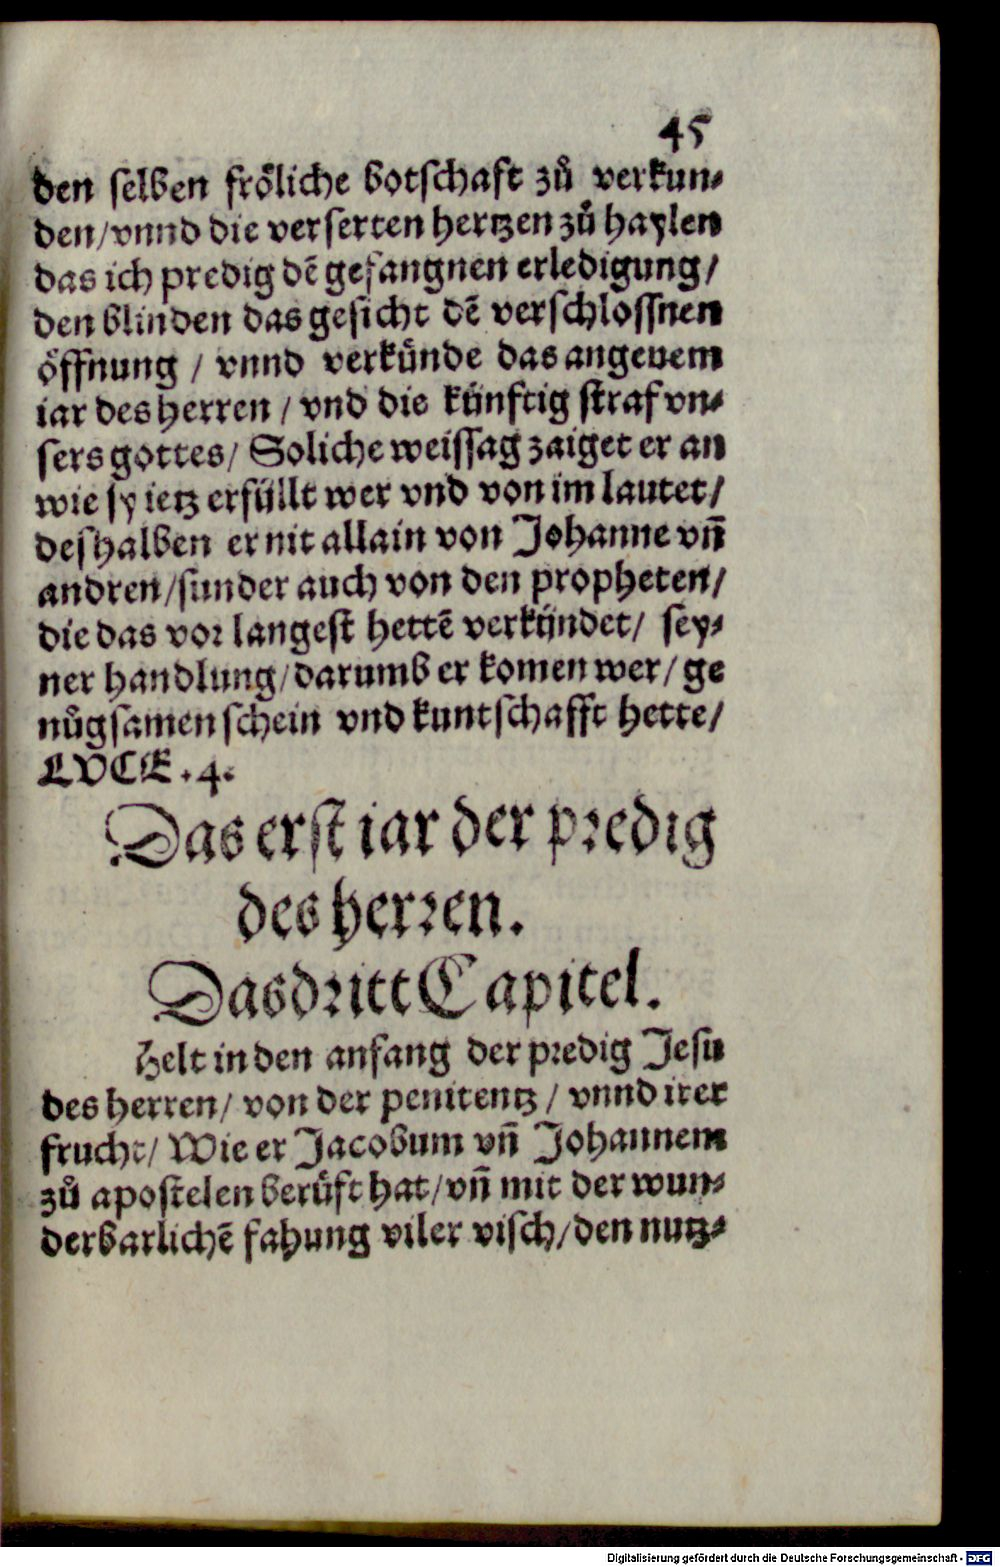 45
den selben fröliche botschaft zů verkun⸗
den/vnnd die verserten hertzen zů haylen
das ich predig dē gefangnen erledigung/
den blinden das gesicht dē verschlossnen
öffnung / vnnd verkünde das angenem
iar des herren / vnd die künftig straf vn⸗
sers gottes/ Soliche weissag zaiget er an
wie sy ietz erfüllt wer vnd von im lautet/
deshalben er nit allain von Johanne vn̄
andren/sunder auch von den propheten/
die das vor langest hettē verkündet/ sey⸗
ner handlung/darumb er komen wer/ ge
nůgsamen schein vnd kuntschafft hette/
LVCE .4.
Das erst iar der predig
des herren.
Das dritt Capitel.
Helt in den anfang der predig Jesu
des herren/ von der penitentz / vnnd irer
frucht/ Wie er Jacobum vn̄ Johannem
zů apostelen berüft hat/vn̄ mit der wun⸗
derbarlichē fahung viler visch/den nutz⸗
Digitalisierung gefördert durch die Deutsche Forschungsgemeinschaft - DFG